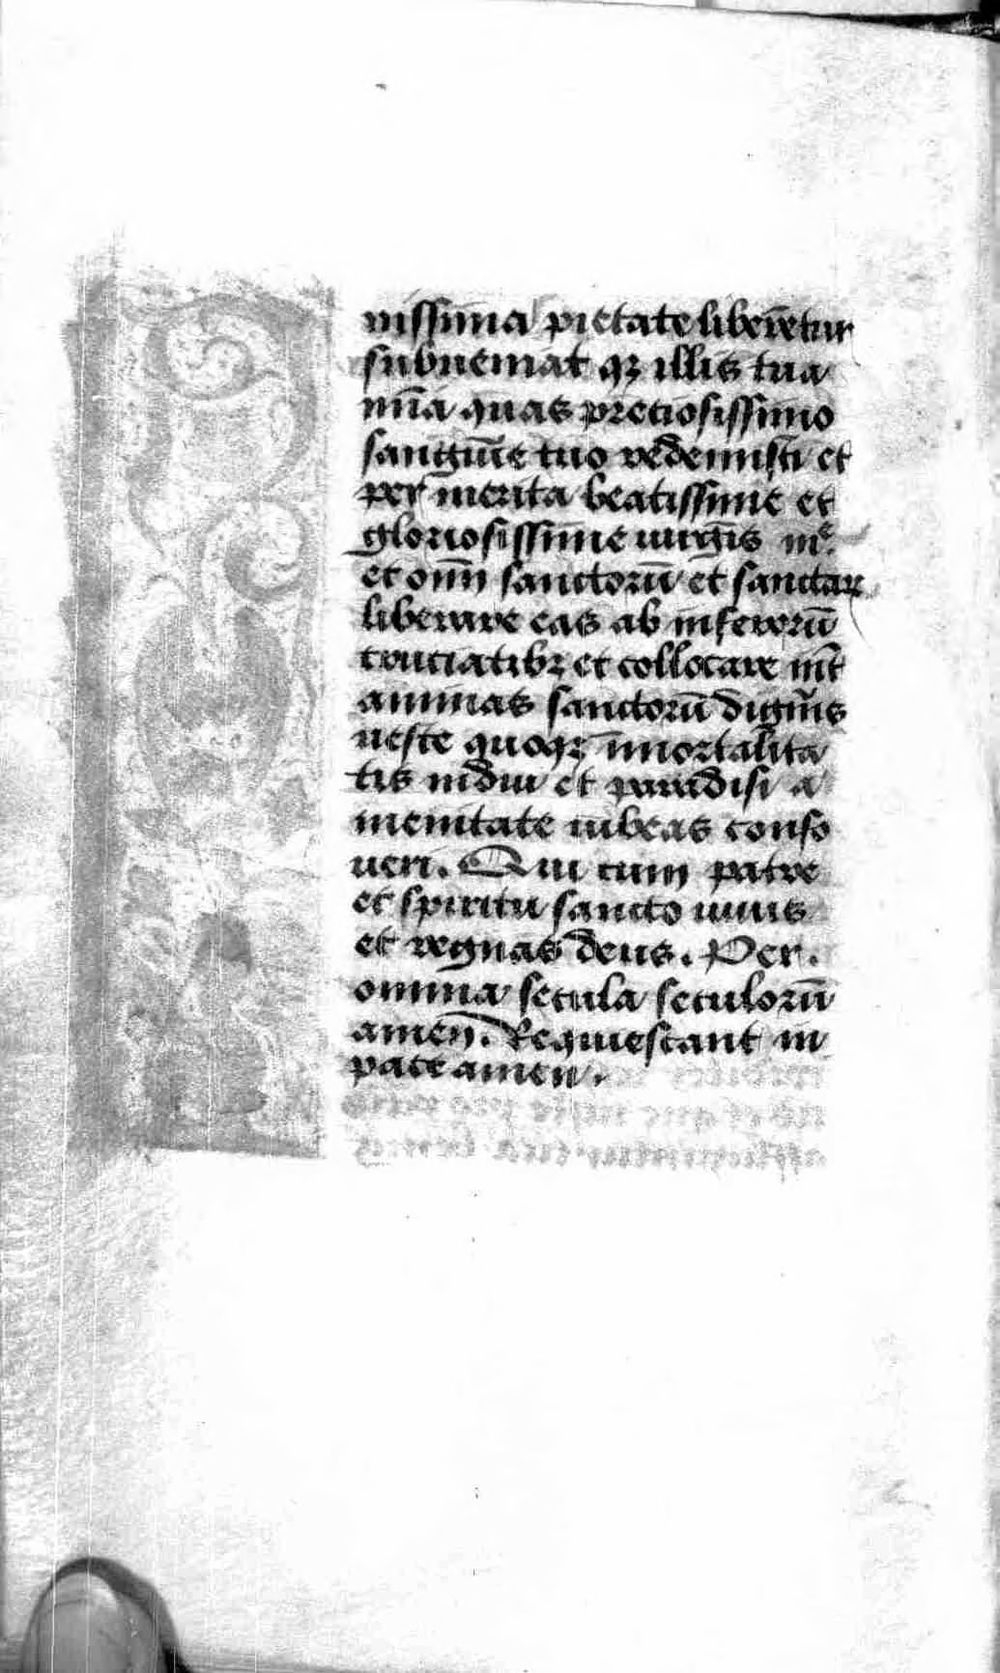 nissima pietate liberētur
subueniat qꝫ illis tua
mīa quas pretiosissimo
sanguīe tuo redemisti et
per merita beatissime et
gloriosissime uirgīs mᵉ.
et oīm sanctorū et sanctaꝝ
liberare eas ab inferorū
cruciatibꝫ et collocare int̄
animas sanctorū digneris
ueste quoqꝫ imortalita
tis indui et paradisi a
menitate iubeas confo
ueri. Qui cum patre
et spiritu sancto uiuis
et regnas deus. Per.
omnia secula seculorū
amen. Requiescant in
pace amen.